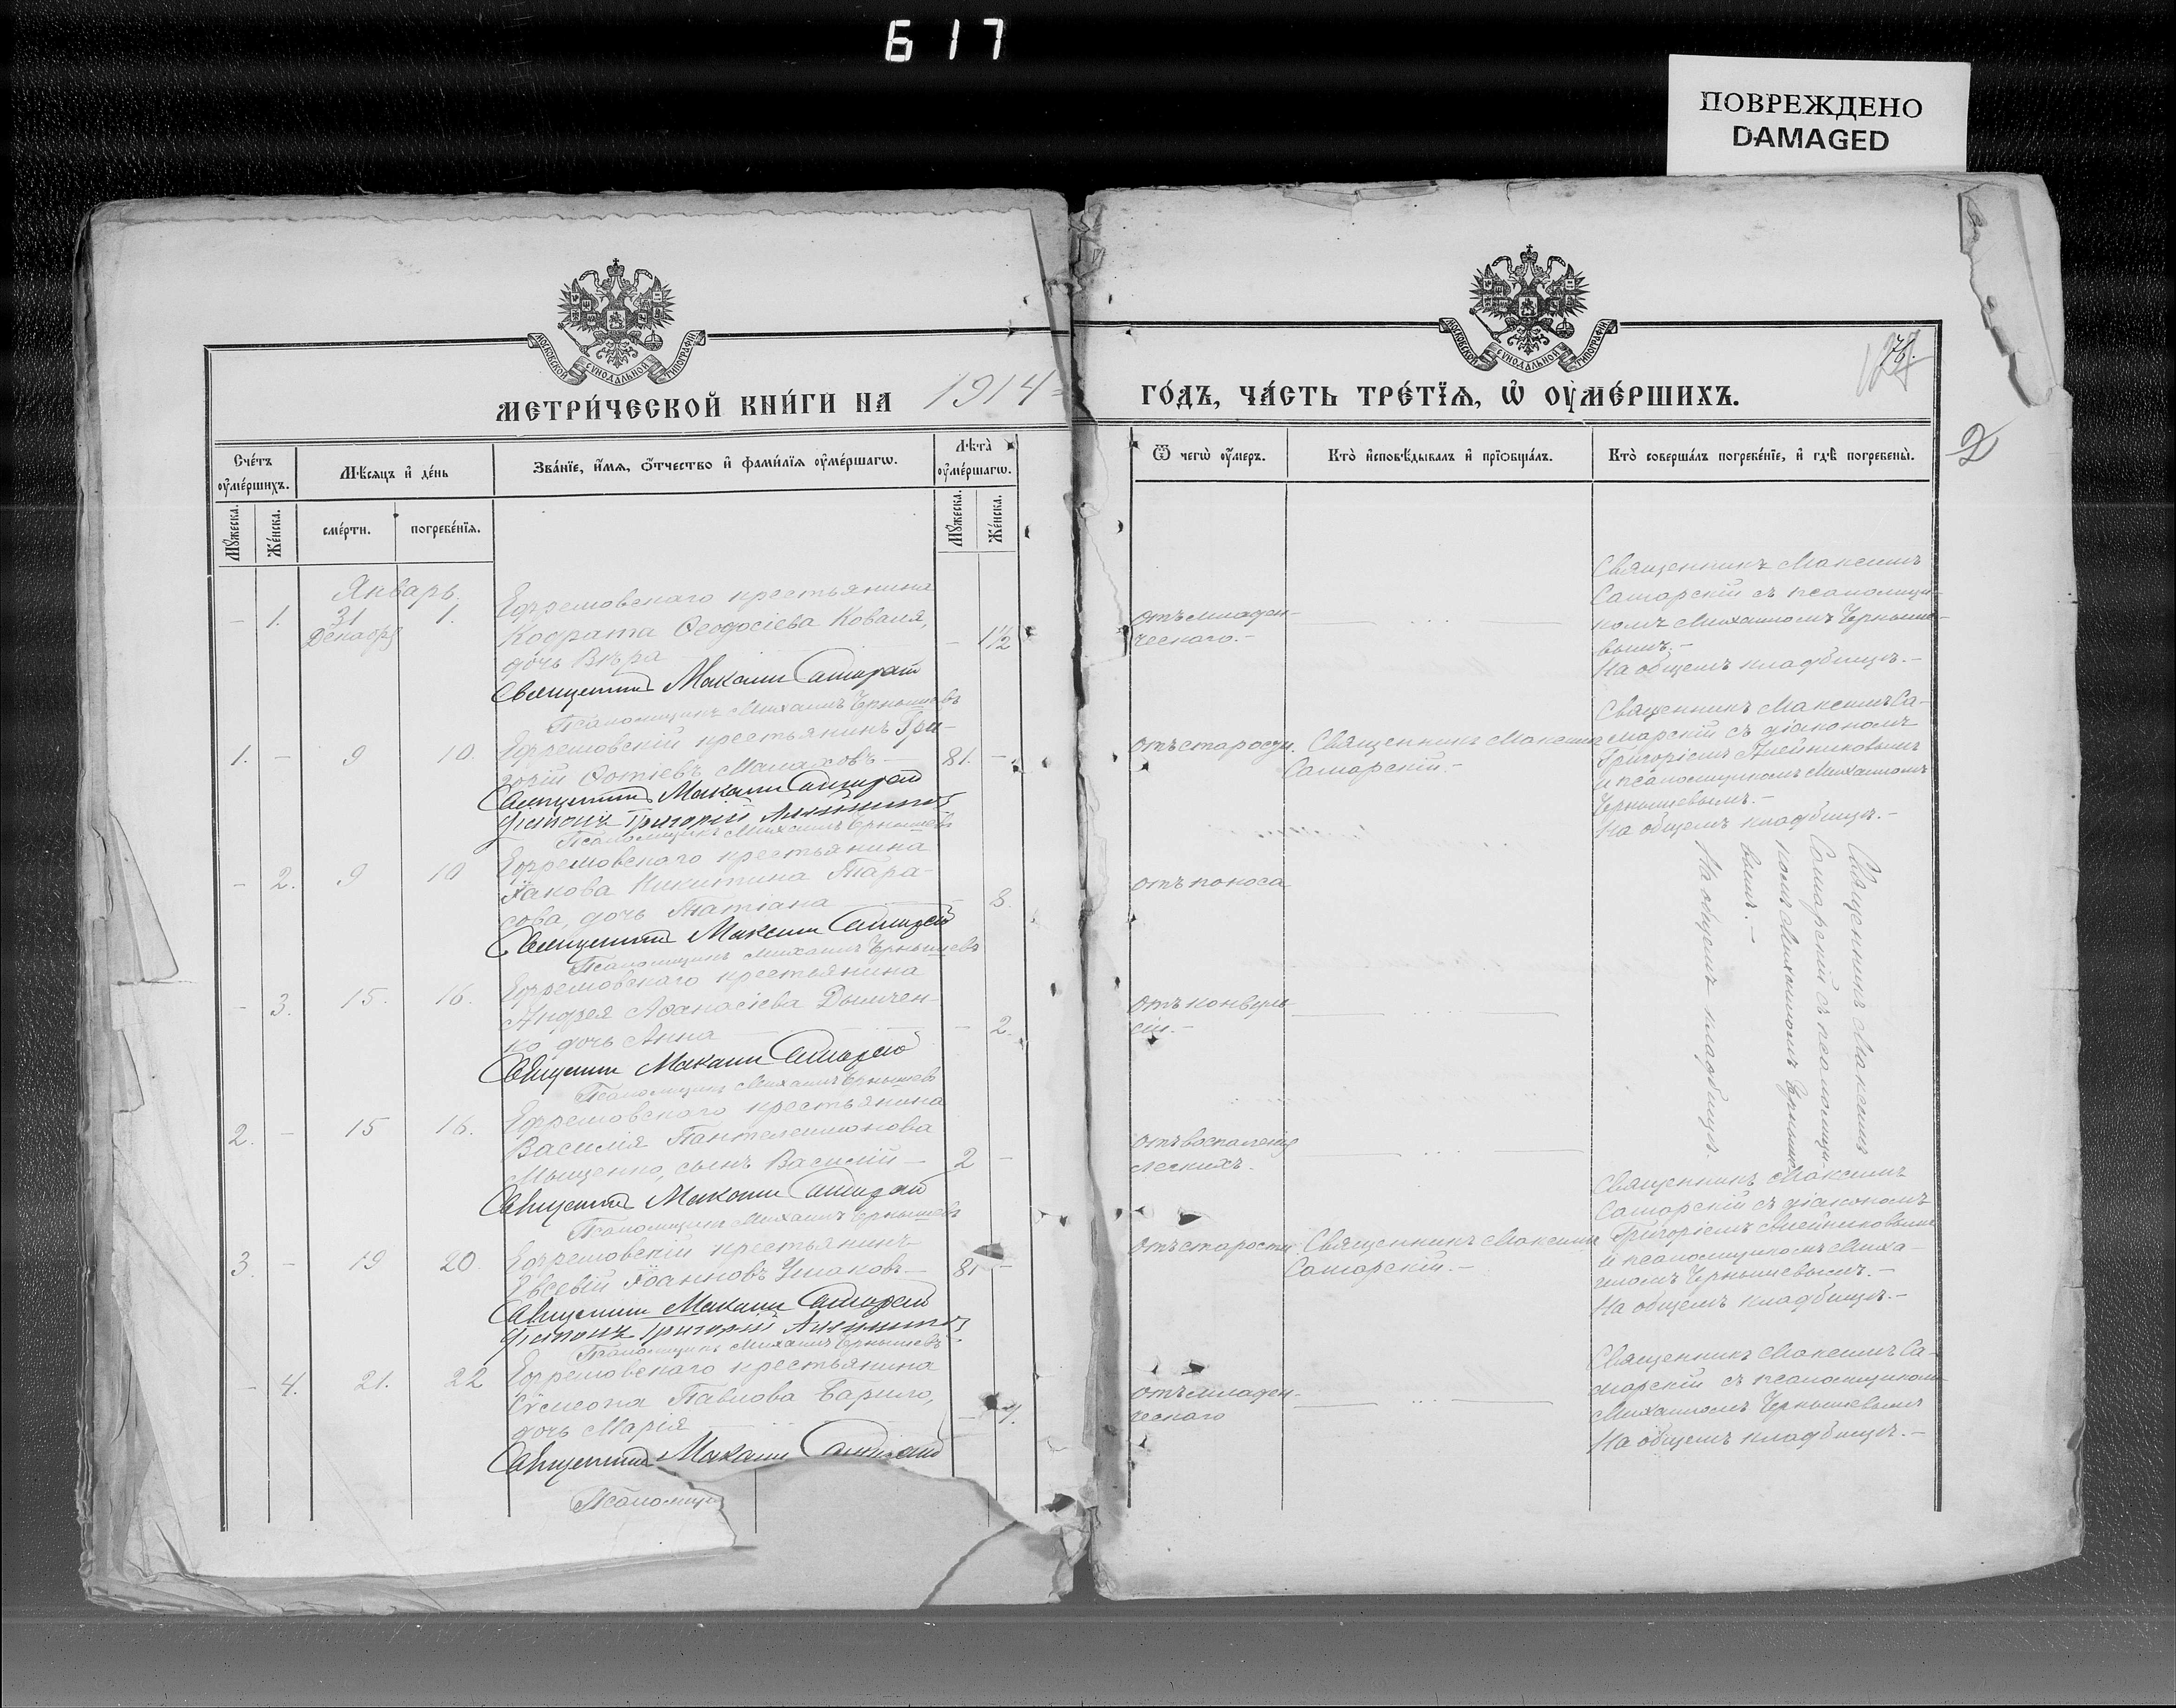 617
ПОВРЕЖДЕНО
DAMAGED
МОСКОВСКОЙ СѴНОДАЛЬНОЙ ТИПОГРАФІИ
МОСКОВСКОЙ СѴНОДАЛЬНОЙ ТИПОГРАФІИ
МЕТРИ́ЧЕСКОЙ КНИ́ГИ НА 1914
ГО́ДЪ, ЧА́СТЬ ТРЕ́ТЇѦ, Ѡ҆ ОУ҆МЕ́РШИХЪ.
2
Сче́тъ оу҆ме́ршихъ.
Мѣ́сѧцъ и҆ де́нь
Зва́нїе, и҆́мѧ, ѻ҆́тчество и҆ фами́лїѧ оу҆ме́ршагѡ.
Лѣта̀ оу҆ме́ршагѡ.
Ѿ чегѡ̀ оу҆́меръ.
Кто̀ и҆сповѣ́дывалъ и҆ прїѡбща́лъ.
Кто̀ соверша́лъ погребе́нїе, и҆ гдѣ̀ погребены̀.
Мꙋ́жеска.
Же́нска.
сме́рти.
погребе́нїѧ.
Мꙋ́жеска.
Же́нска.
Январь.
- 1. 31 Декабря 1.
Ефремовскаго крестьянина
Кодрата Ѳеодосіева Коваля,
дочь Вѣра
- 1½
Священникъ Максимъ Самарскій
Псаломщикъ Михаилъ Чернышевъ
отъ младен-
ческаго.-
Священникъ Максимъ
Самарскій съ псаломщи-
комъ Михаиломъ Черныше-
вымъ.-
На общемъ кладбищѣ.-
1. - 9 10.
Ефремовскій крестьянинъ Гри-
горій Ѳотіевъ Малаховъ-
81. -
Священникъ Максимъ Самарскій
Діаконъ Григорій Алейниковъ
Псаломщикъ Михаилъ Чернышевъ
отъ старости.
Священникъ Максимъ
Самарскій.-
Священникъ Максимъ Са-
марскій съ діакономъ
Григоріемъ Алейниковымъ
и псаломщикомъ Михаиломъ
Чернышевымъ.-
На общемъ кладбищѣ.-
- 2. 9 10
Ефремовскаго крестьянина
Іакова Никитина Тара-
сова, дочь Татіана
8.
Священникъ Максимъ Самарскій
Псаломщикъ Михаилъ Чернышевъ
отъ поноса
Священникъ Максимъ
Самарскій съ псаломщи-
комъ Михаиломъ Черныше-
вымъ.-
На общемъ кладбищѣ.
- 3. 15. 16.
Ефремовскаго крестьянина
Андрея Аѳанасіева Дымчен-
ко дочь Анна
- 2.
Священникъ Максимъ Самарскій
Псаломщикъ Михаилъ Чернышевъ
отъ конвуль-
сіи.-
2. - 15 16.
Ефремовскаго крестьянина
Василія Пантелеимонова
Мищенко, сынъ Василій-
2 -
Священникъ Максимъ Самарскій
Псаломщикъ Михаилъ Чернышевъ
отъ воспаленія
легкихъ.
3. - 19 20.
Ефремовскій крестьянинъ
Евсевій Іоанновъ Ушаковъ-
81 -
Священникъ Максимъ Самарскій
Діаконъ Григорій Алейниковъ
Псаломщикъ Михаилъ Чернышевъ
отъ старости
Священникъ Максимъ
Самарскій.-
Священникъ Максимъ
Самарскій съ діакономъ
Григоріемъ Алейниковымъ
и псаломщикомъ Миха-
иломъ Чернышевымъ.-
На общемъ кладбищѣ.-
- 4. 21. 22
Ефремовскаго крестьянина
Сѵмеона Павлова Барило,
дочь Марія
Священникъ Максимъ Самарскій
Псаломщи
отъ младен-
ческаго
Священникъ Максимъ Са-
марскій съ псаломщикомъ
Михаиломъ Чернышевымъ
На общемъ кладбищѣ.-